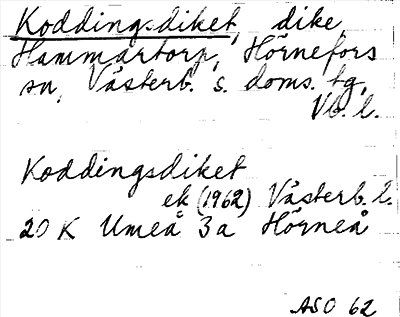 Koddingsdiket, dike,
Hammartorp, Hörnefors
sn, Västerb. s. doms. tg,
Vb. l.
Koddingsdiket
ek (1962) Västerb. l.
20 K Umeå 3a Hörneå
ASO 62